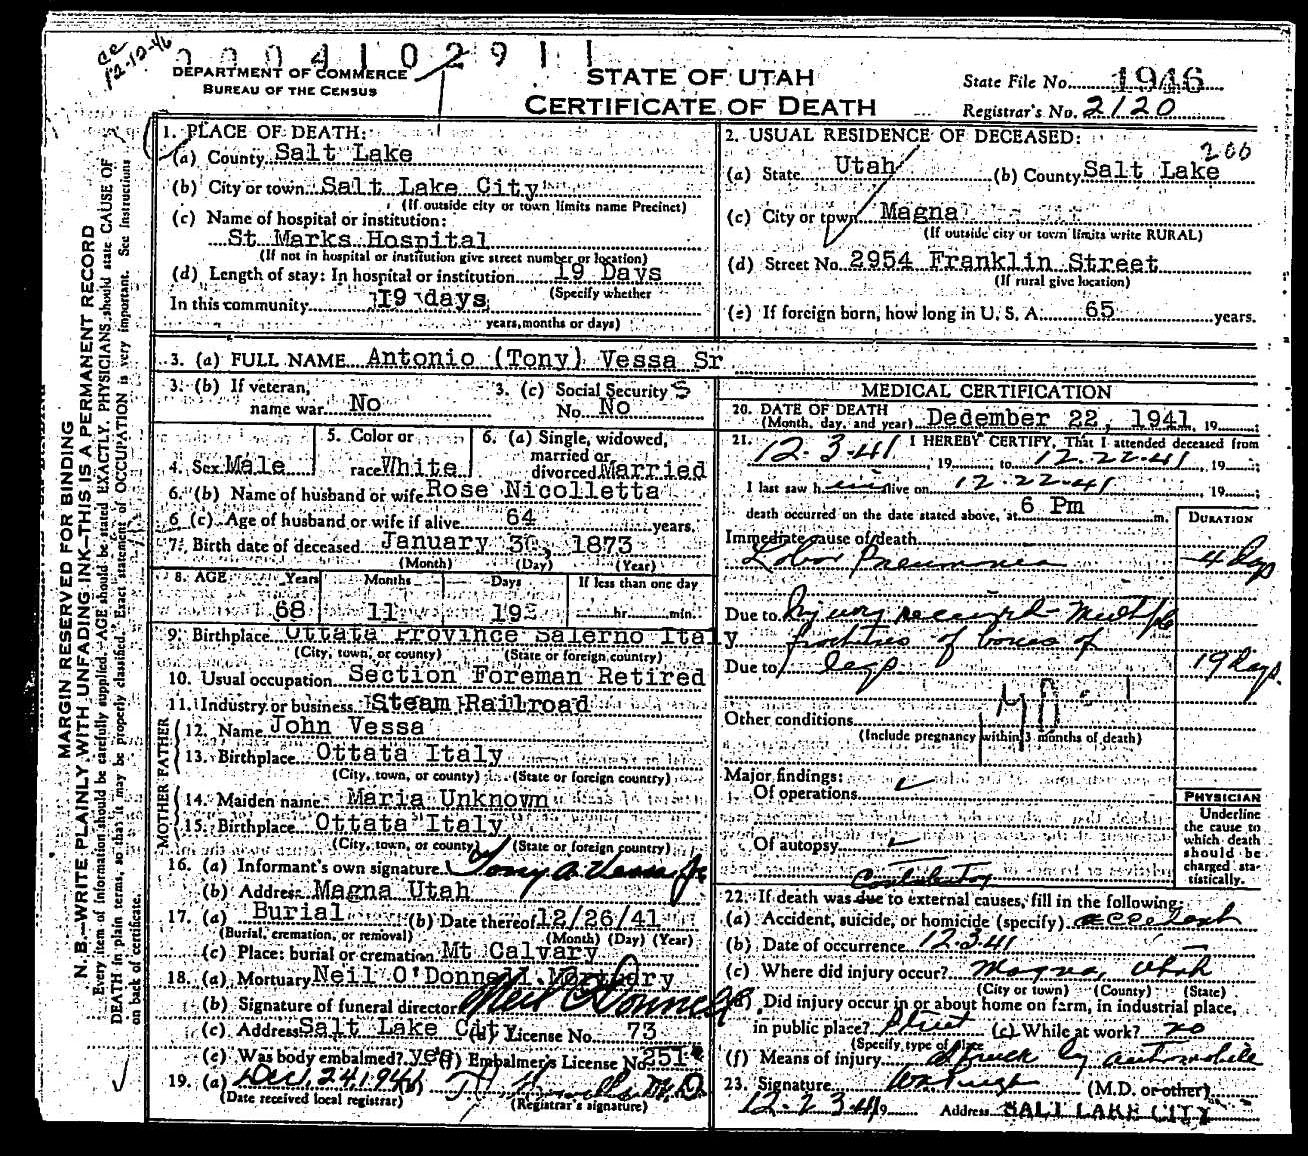 12-12-46
0004102911
DEPARTMENT OF COMMERCE
BUREAU OF THE CENSUS
STATE OF UTAH
CERTIFICATE OF DEATH
State File No. 1946
Registrar's No. 2120
MARGIN RESERVED FOR BINDING
N. B.—WRITE PLAINLY, WITH UNFADING INK—THIS IS A PERMANENT RECORD
Every item of information should be carefully supplied. AGE should be stated EXACTLY. PHYSICIANS should state CAUSE OF
DEATH in plain terms, so that it may be properly classified. Exact statement of OCCUPATION is very important. See instructions
on back of certificate.
1. PLACE OF DEATH:
(a) County Salt Lake
(b) City or town Salt Lake City
(If outside city or town limits name Precinct)
(c) Name of hospital or institution:
St Marks Hospital
(If not in hospital or institution give street number or location)
(d) Length of stay: In hospital or institution 19 Days
(Specify whether
In this community 19 days
years, months or days)
2. USUAL RESIDENCE OF DECEASED:
200
(a) State Utah (b) County Salt Lake
(c) City or town Magna
(If outside city or town limits write RURAL)
(d) Street No. 2954 Franklin Street
(If rural give location)
(e) If foreign born, how long in U. S. A. 65 years.
3. (a) FULL NAME Antonio (Tony) Vessa Sr
3. (b) If veteran, name war No
3. (c) Social Security No. No
4. Sex Male
5. Color or race White
6. (a) Single, widowed, married or divorced Married
6. (b) Name of husband or wife Rose Nicolletta
6 (c) Age of husband or wife if alive 64 years.
7. Birth date of deceased January 30, 1873
(Month) (Day) (Year)
8. AGE Years Months Days If less than one day
68 11 19 hr. min.
9. Birthplace Ottata Province Salerno Italy
(City, town, or county) (State or foreign country)
10. Usual occupation Section Foreman Retired
11. Industry or business Steam Railroad
FATHER
12. Name John Vessa
13. Birthplace Ottata Italy
(City, town, or county) (State or foreign country)
MOTHER
14. Maiden name Maria Unknown
15. Birthplace Ottata Italy
(City, town, or county) (State or foreign country)
16. (a) Informant's own signature Tony A. Vessa Jr
(b) Address Magna Utah
17. (a) Burial (b) Date thereof 12/26/41
(Burial, cremation, or removal) (Month) (Day) (Year)
(c) Place: burial or cremation Mt Calvary
18. (a) Mortuary Neil O'Donnell Mortuary
(b) Signature of funeral director Neil O'Donnell
(c) Address Salt Lake City (d) License No. 73
(e) Was body embalmed? yes (f) Embalmer's License No 251
19. (a) Dec. 24 1941 M.D.
(Date received local registrar) (Registrar's signature)
MEDICAL CERTIFICATION
20. DATE OF DEATH
(Month, day, and year) Dedember 22, 1941, 19
21. I HEREBY CERTIFY, That I attended deceased from
12-3-41, 19 to 12-22-41, 19
I last saw him alive on 12-22-41, 19
death occurred on the date stated above, at 6 Pm m.
DURATION
Immediate cause of death
Lobar Pneumonia 4 days
Due to Injury received Multiple
fractures of bones of
Due to legs 19 days.
Other conditions
(Include pregnancy within 3 months of death)
Major findings:
Of operations
Of autopsy
PHYSICIAN
Underline
the cause to
which death
should be
charged sta-
tistically.
Contributory
22. If death was due to external causes, fill in the following:
(a) Accident, suicide, or homicide (specify) accident
(b) Date of occurrence 12-3-41
(c) Where did injury occur? Magna, Utah
(City or town) (County) (State)
(d) Did injury occur in or about home on farm, in industrial place,
in public place? Street (e) While at work? no
(Specify type of place
(f) Means of injury struck by automobile
23. Signature (M.D. or other)
12-23-41 19 Address SALT LAKE CITY